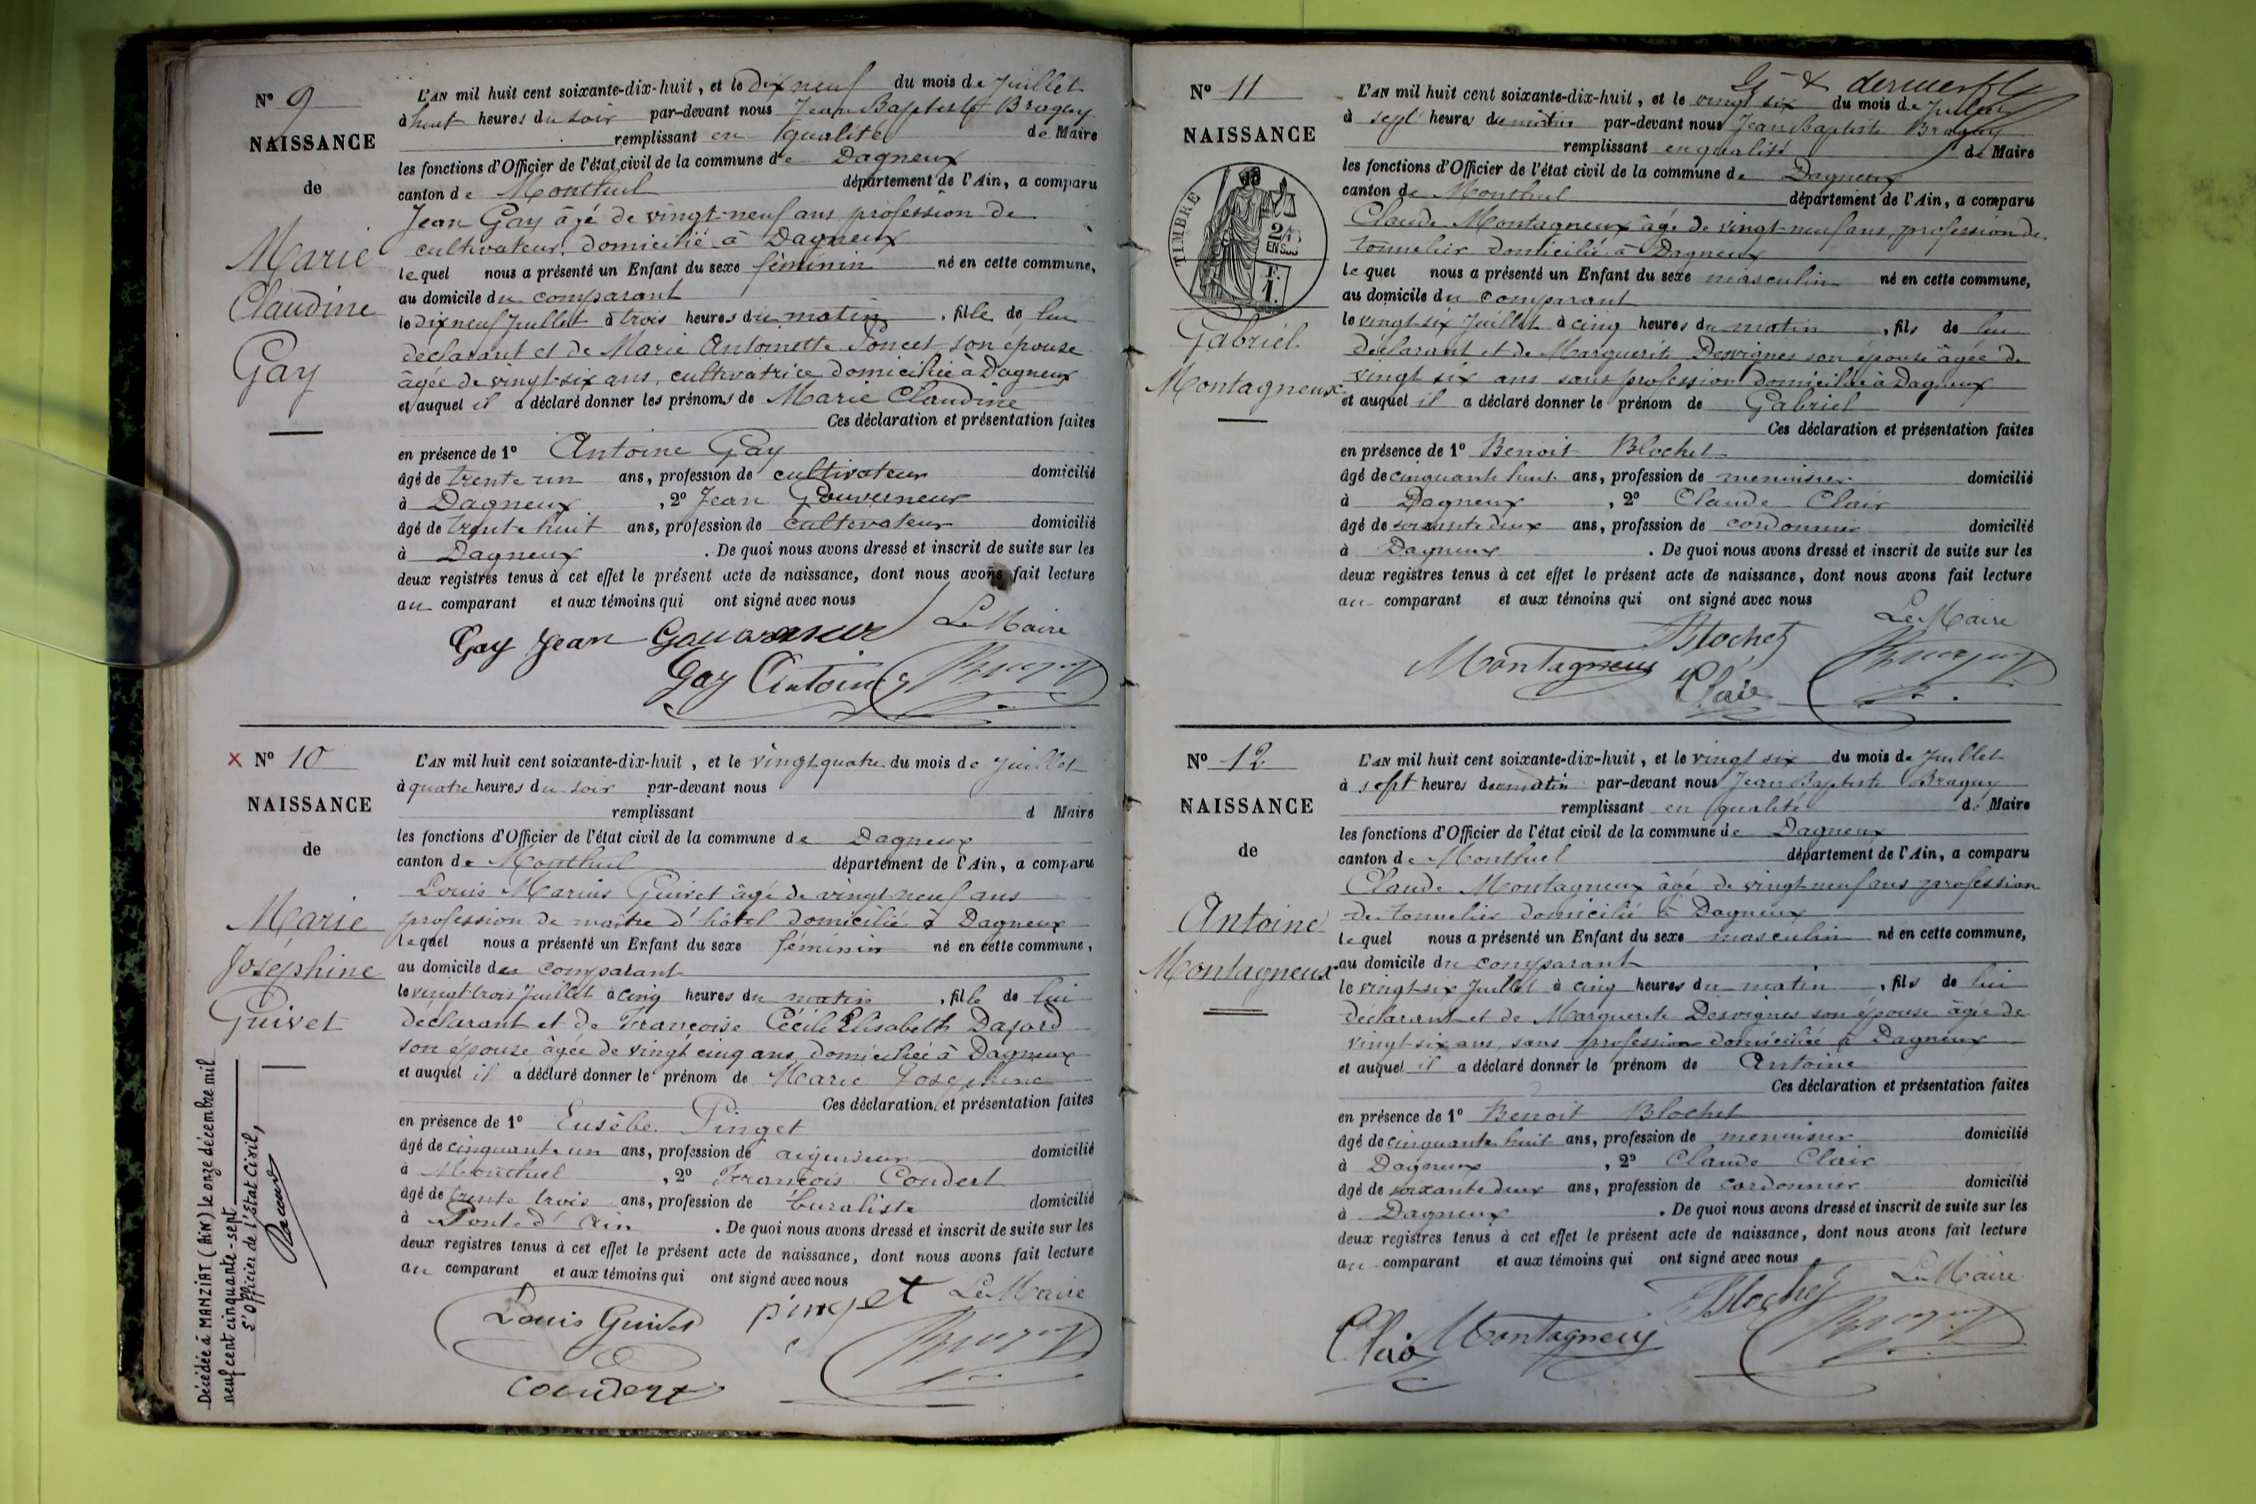 N° 9
NAISSANCE
de
Marie
Claudine
Gay
L'AN mil huit cent soixante-dix-huit, et le dix neuf du mois de Juillet
à huit heures du soir par-devant nous Jean Baptiste Braguy
remplissant en qualité de Maire
les fonctions d'Officier de l'état civil de la commune de Dagneux
canton de Montluel département de l'Ain, a comparu
Jean Gay âgé de vingt-neuf ans profession de
cultivateur domicilié à Dagneux
lequel nous a présenté un Enfant du sexe féminin né en cette commune,
au domicile du comparant
le dix neuf Juillet à trois heures du matin, fille de lui
déclarant et de Marie Antoinette Poncet son épouse
âgée de vingt-six ans, cultivatrice domiciliée à Dagneux
et auquel il a déclaré donner les prénoms de Marie Claudine
Ces déclaration et présentation faites
en présence de 1° Antoine Gay
âgé de trente un ans, profession de cultivateur domicilié
à Dagneux, 2° Jean Gouverneur
âgé de trente huit ans, profession de cultivateur domicilié
à Dagneux. De quoi nous avons dressé et inscrit de suite sur les
deux registres tenus à cet effet le présent acte de naissance, dont nous avons fait lecture
au comparant et aux témoins qui ont signé avec nous
Le Maire
Gay Jean Gouverneur
Gay Antoine
N° 10
NAISSANCE
de
Marie
Joséphine
Guivet
Décédée à MANZIAT (Ain) le onze décembre mil
neuf cent cinquante-sept
L'Officier de l'Etat Civil,
L'AN mil huit cent soixante-dix-huit, et le vingt quatre du mois de Juillet
à quatre heures du soir par-devant nous
remplissant d Maire
les fonctions d'Officier de l'état civil de la commune de Dagneux
canton de Montluel département de l'Ain, a comparu
Louis Marius Guivet âgé de vingt neuf ans
profession de maître d'hôtel domicilié à Dagneux
lequel nous a présenté un Enfant du sexe féminin né en cette commune,
au domicile du comparant
le vingt trois Juillet à cinq heures du matin, fille de lui
déclarant et de Françoise Cécile Elisabeth Dajord
son épouse âgée de vingt cinq ans domiciliée à Dagneux
et auquel il a déclaré donner le prénom de Marie Joséphine
Ces déclaration et présentation faites
en présence de 1° Eusèbe Pinget
âgé de cinquante un ans, profession de aiguiseur domicilié
à Montluel, 2° François Condert
âgé de trente trois ans, profession de buraliste domicilié
à Pont d'Ain. De quoi nous avons dressé et inscrit de suite sur les
deux registres tenus à cet effet le présent acte de naissance, dont nous avons fait lecture
au comparant et aux témoins qui ont signé avec nous
Le Maire
Louis Guivet pinget
Condert
N° 11
NAISSANCE
TIMBRE
Gabriel
Montagneux
L'AN mil huit cent soixante-dix-huit, et le vingt six du mois de Juillet
à sept heures du matin par-devant nous Jean Baptiste Braguy
remplissant en qualité de Maire
les fonctions d'Officier de l'état civil de la commune de Dagneux
canton de Montluel département de l'Ain, a comparu
Claude Montagneux âgé de vingt-neuf ans profession de
tonnelier domicilié à Dagneux
lequel nous a présenté un Enfant du sexe masculin né en cette commune,
au domicile du comparant
le vingt-six Juillet à cinq heures du matin, fils de lui
déclarant et de Marguerite Desvignes son épouse âgée de
vingt six ans sans profession domiciliée à Dagneux
et auquel il a déclaré donner le prénom de Gabriel
Ces déclaration et présentation faites
en présence de 1° Benoit Blochet
âgé de cinquante huit ans, profession de menuisier domicilié
à Dagneux, 2° Claude Clair
âgé de soixante deux ans, profession de cordonnier domicilié
à Dagneux. De quoi nous avons dressé et inscrit de suite sur les
deux registres tenus à cet effet le présent acte de naissance, dont nous avons fait lecture
au comparant et aux témoins qui ont signé avec nous
Le Maire
Blochet
Montagneux Clair
N° 12
NAISSANCE
de
Antoine
Montagneux
L'AN mil huit cent soixante-dix-huit, et le vingt six du mois de Juillet
à sept heures du matin par-devant nous Jean Baptiste Braguy
remplissant en qualité de Maire
les fonctions d'Officier de l'état civil de la commune de Dagneux
canton de Montluel département de l'Ain, a comparu
Claude Montagneux âgé de vingt neuf ans profession
de tonnelier domicilié à Dagneux
lequel nous a présenté un Enfant du sexe masculin né en cette commune,
au domicile du comparant
le vingt-six Juillet à cinq heures du matin, fils de lui
déclarant et de Marguerite Desvignes son épouse âgée de
vingt-six ans, sans profession domiciliée à Dagneux
et auquel il a déclaré donner le prénom de Antoine
Ces déclaration et présentation faites
en présence de 1° Benoit Blochet
âgé de cinquante huit ans, profession de menuisier domicilié
à Dagneux, 2° Claude Clair
âgé de soixante deux ans, profession de cordonnier domicilié
à Dagneux. De quoi nous avons dressé et inscrit de suite sur les
deux registres tenus à cet effet le présent acte de naissance, dont nous avons fait lecture
au comparant et aux témoins qui ont signé avec nous
Le Maire
Blochet
Clair Montagneux